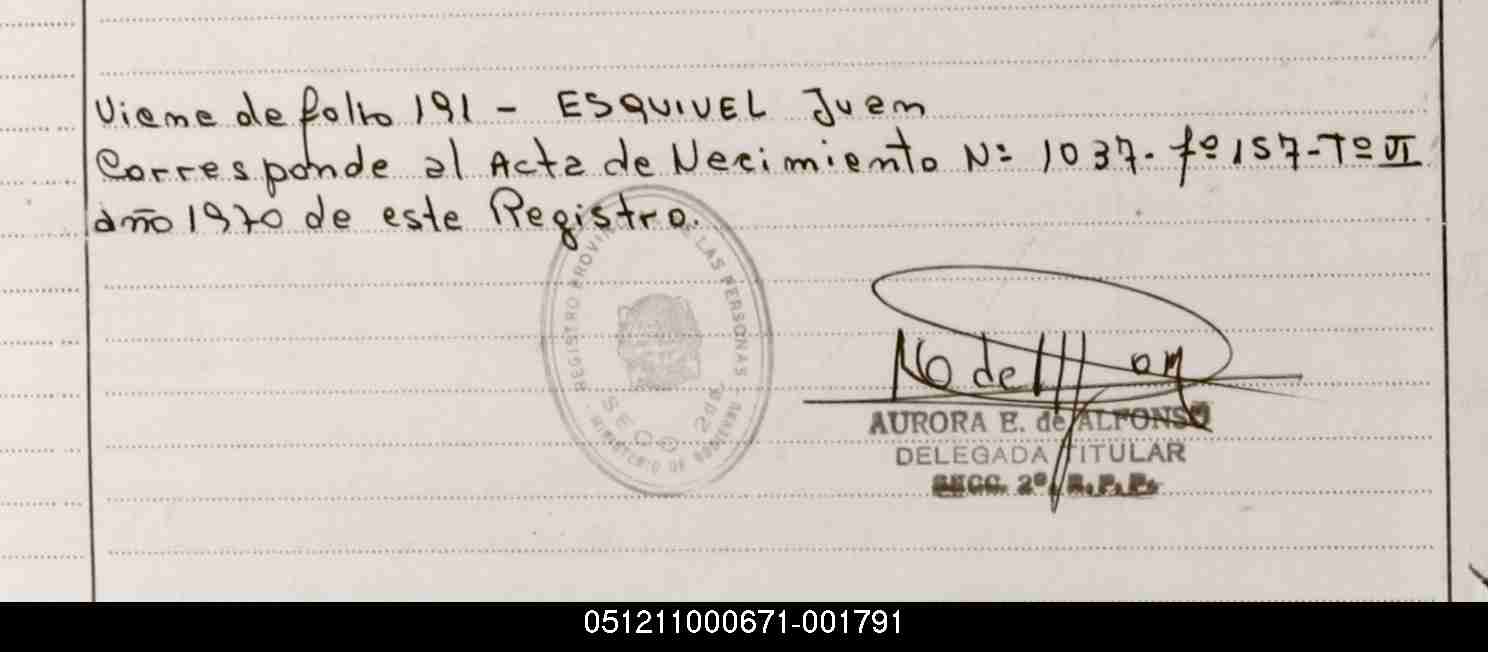 Viene de folio 191 - ESQUIVEL Juan
Corresponde al Acta de Nacimiento Nº 1037. fº 157 - Tº VI
año 1970 de este Registro.
REGISTRO PROVINCIAL DE LAS PERSONAS
SECC 2da
MINISTERIO DE GOBIERNO
AURORA E. de ALFONSO
DELEGADA TITULAR
SECC. 2º R.P.P.
051211000671-001791